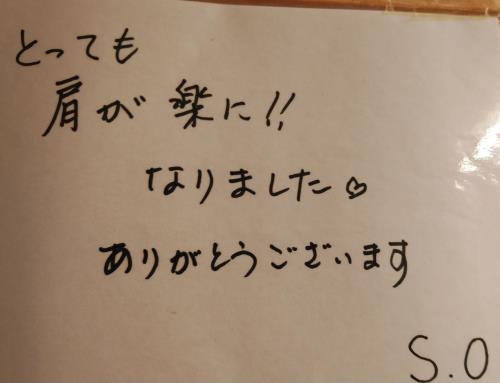 とっても
肩が楽に!!
なりました♡
ありがとうございます
S.O